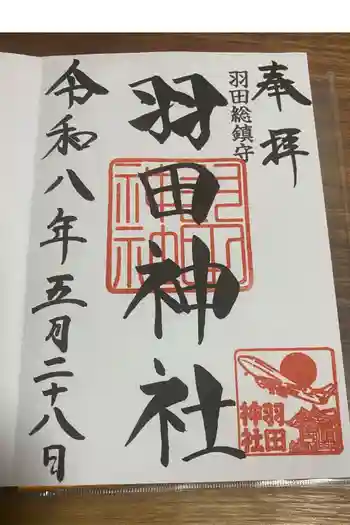 奉拝
羽田総鎮守
羽田神社
羽田神社
令和八年五月二十八日
羽田
神社